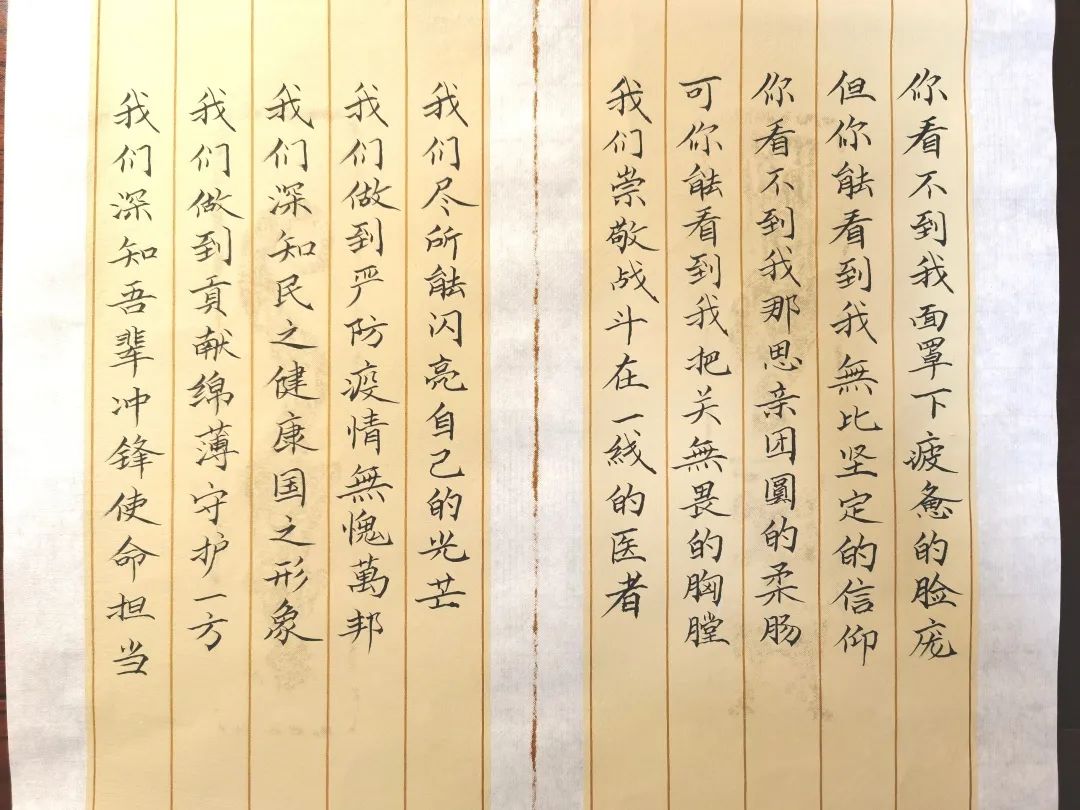 你看不到我面罩下疲惫的脸庞
但你能看到我無比坚定的信仰
你看不到我那思亲团圆的柔肠
可你能看到我把关無畏的胸膛
我们崇敬战斗在一线的医者
我们尽所能闪亮自己的光芒
我们做到严防疫情無愧萬邦
我们深知民之健康国之形象
我们做到贡献绵薄守护一方
我们深知吾辈冲锋使命担当